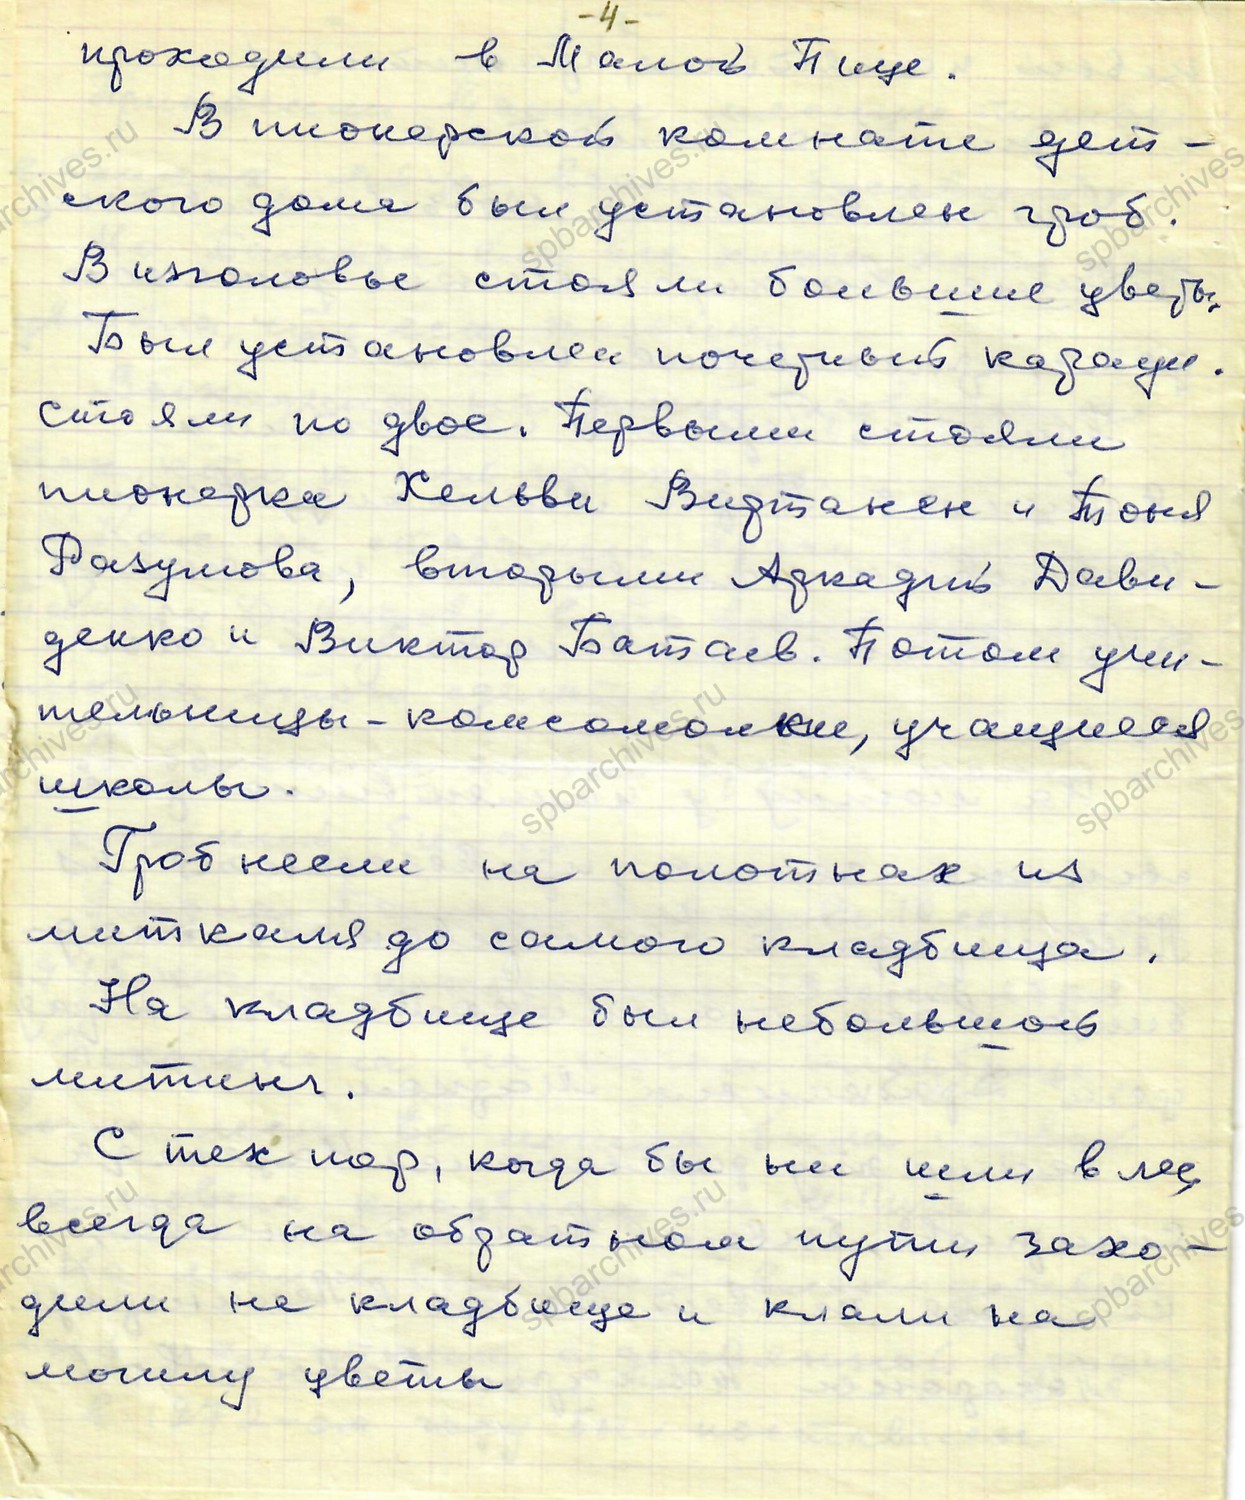 -4-
проходили в Малой Пице.
В пионерской комнате дет-
ского дома был установлен гроб.
В изголовье стояли большие цветы.
Был установлен почетный караул.
Стояли по двое. Первыми стояли
пионерка Хельви Виртанен и Тоня
Разумова, вторыми Аркадий Дави-
денко и Виктор Батаев. Потом учи-
тельницы-комсомолки, учащиеся
школы.
Гроб несли на полотнах из
миткаля до самого кладбища.
На кладбище был небольшой
митинг.
С тех пор, когда бы ни шли в лес,
всегда на обратном пути захо-
дили на кладбище и клали на
могилу цветы
spbarchives.ru